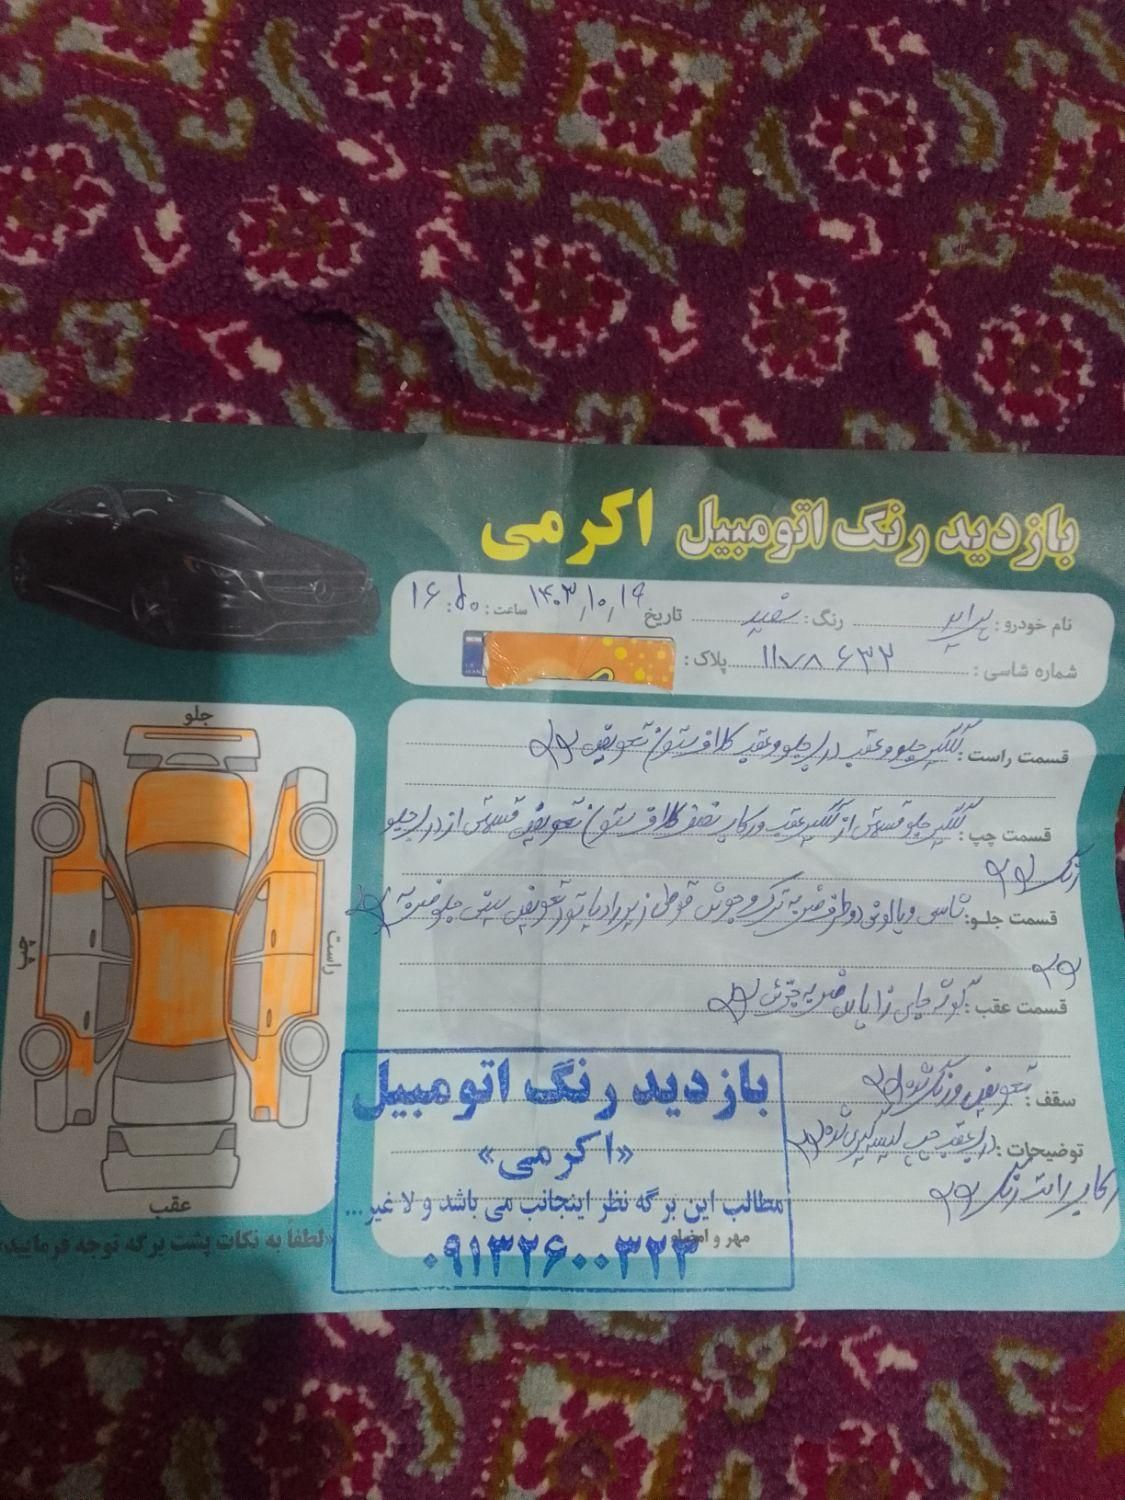 بازدید رنگ اتومبیل اکرمی
نام خودرو: پراید رنگ: سفید تاریخ ۱۴۰۳,۱۰,۱۹ ساعت: ۱۶:۵۰
شماره شاسی: ۱۱۷۸۶۳۲ پلاک:
قسمت راست: گلگیر جلو و عقب درب جلو و عقب کلاف ستون تعویض
قسمت چپ: گلگیر جلو قسمتی از گلگیر عقب و رکاب نصف کلاف ستون تعویض قسمتی از درب جلو
رنگ
قسمت جلـو: شاسی و پالونی دو طرف ضربه ترک و جوش قوطی زیر رادیاتور تعویض سینی جلو ضربه
قسمت عقب: گوشه چپ زاپاس ضربه جزئی
سقف: تعویض و رنگ شده
توضیحات: درب عقب چپ لیسه گیری شده
رکاب راست رنگ
مهر و امضاء
جلو
چپ
راست
عقب
«لطفاً به نکات پشت برگه توجه فرمایید»
بازدید رنگ اتومبیل
«اکرمی»
مطالب این برگه نظر اینجانب می باشد و لا غیر...
۰۹۱۳۲۶۰۰۳۲۳